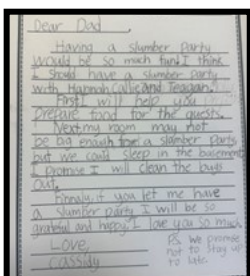 Dear Dad,
Having a slumber party
would be so much fun. I think
I should have a slumber party
with Hannah, Callie and Teagan.
First I will help you
prepare food for the guests.
Next my room may not
be big enough for a slumber party
but we could sleep in the basement
I promise I will clean the bugs
out.
Finnaly, if you let me have
a slumber party I will be so
grateful and happy. I love you so much.
Love,
Cassidy
P.S. We promise
not to stay up
to late.